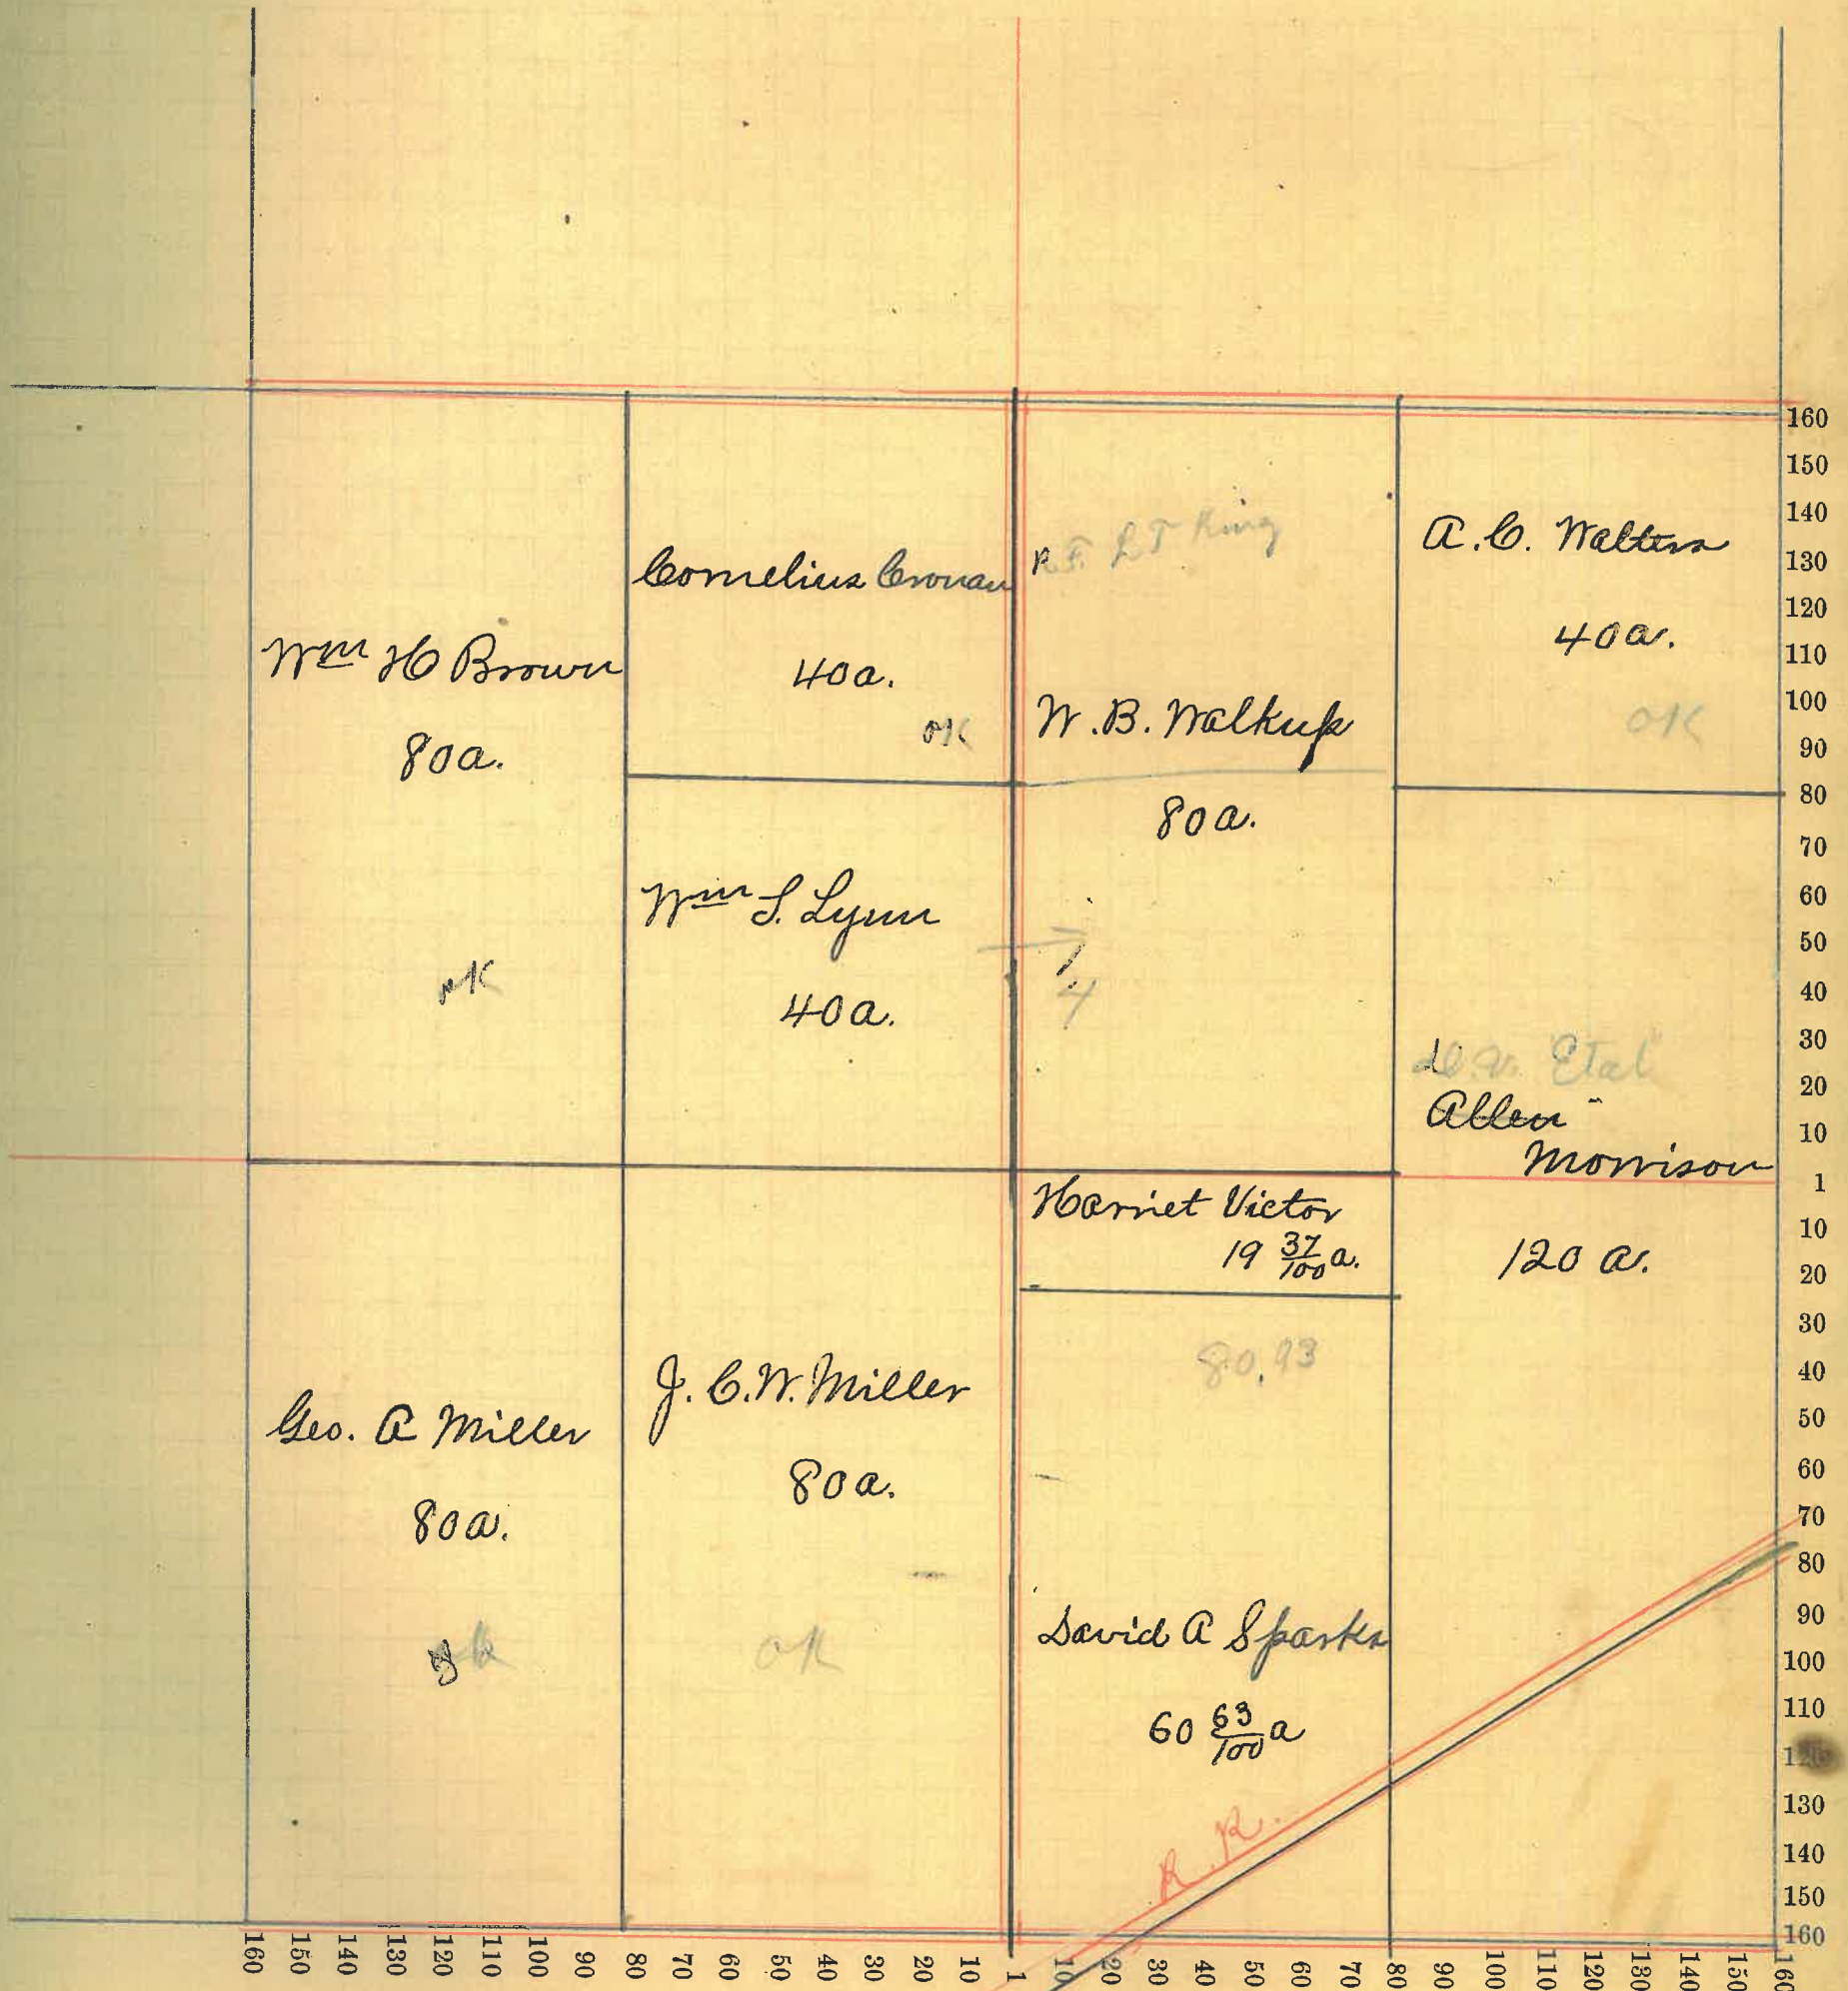 Wm H Brown
80a.
OK
Cornelius Cronau
40a.
OK
Wm S. Lynn
40a.
R.F. L T King
W.B. Walkup
80a.
4
A.C. Walters
40a.
OK
Etal
Allen
Morrison
120 a.
Harriet Victor
19 37/100 a.
80.93
David A Sparks
60 63/100 a
R.R.
Geo. A Miller
80a.
ok
J.C.W. Miller
80a.
OK
160
150
140
130
120
110
100
90
80
70
60
50
40
30
20
10
1
10
20
30
40
50
60
70
80
90
100
110
120
130
140
150
160
160 150 140 130 120 110 100 90 80 70 60 50 40 30 20 10 1 10 20 30 40 50 60 70 80 90 100 110 120 130 140 150 160